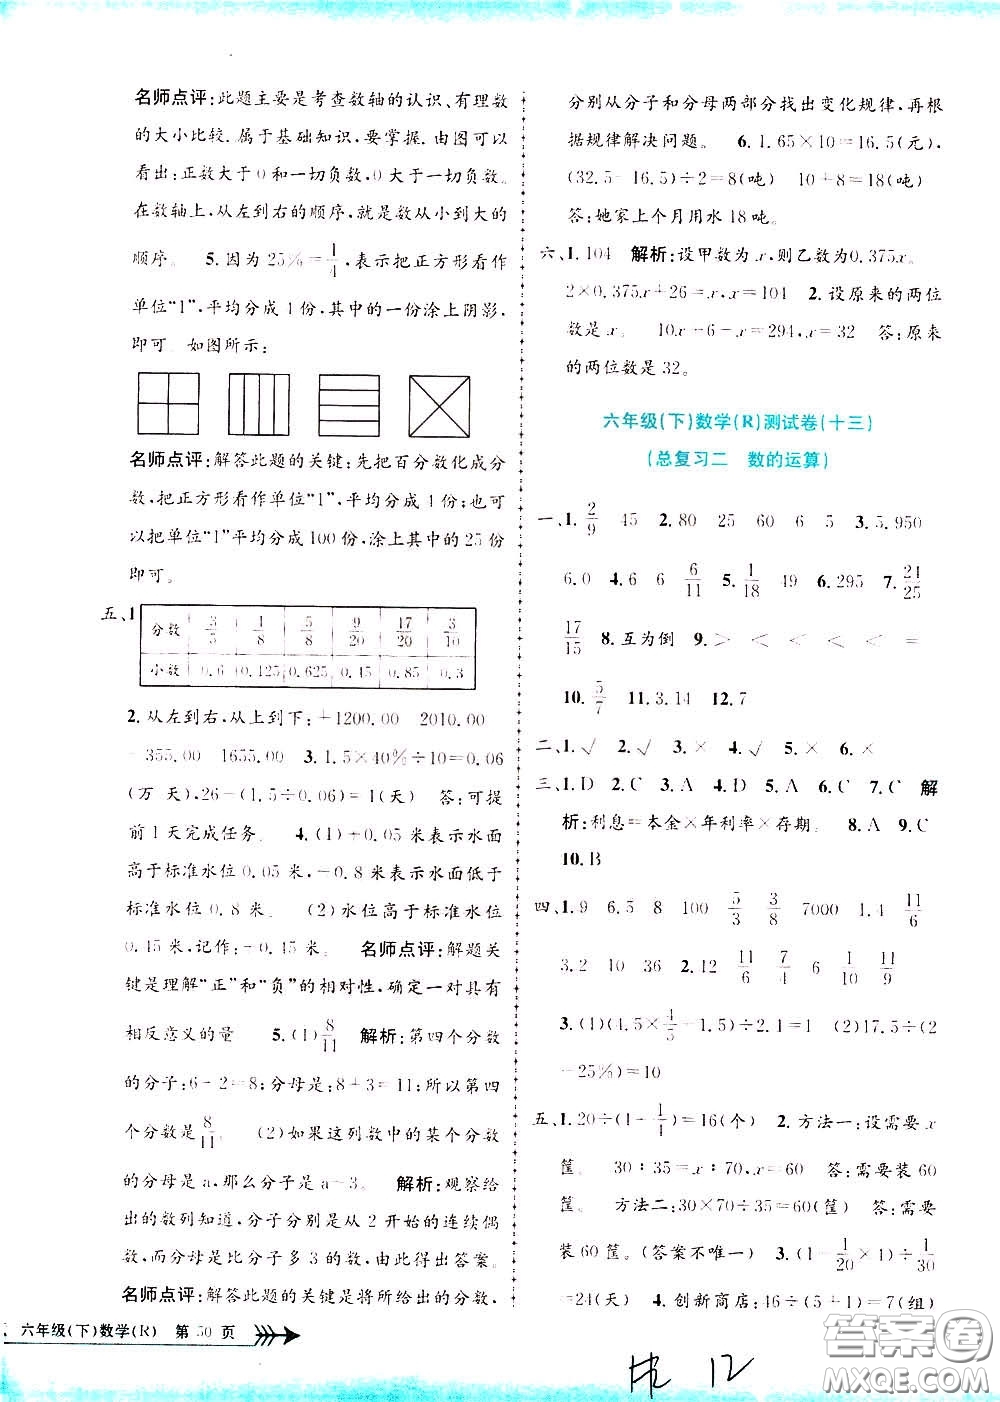 名师点评:此题主要是考查数轴的认识、有理数
的大小比较.属于基础知识,要掌握.由图可以
看出:正数大于0和一切负数,0大于一切负数。
在数轴上,从左到右的顺序,就是数从小到大的
顺序。 5.因为25%=1/4,表示把正方形看作
单位“1”,平均分成4份,其中的一份涂上阴影,
即可 如图所示:
名师点评:解答此题的关键:先把百分数化成分
数,把正方形看作单位“1”,平均分成4份;也可
以把单位“1”平均分成100份,涂上其中的25份
即可。
五、1
分数 3/5 1/8 5/8 9/20 17/20 3/10
小数 0.6 0.125 0.625 0.45 0.85 0.3
2.从左到右,从上到下:+1200.00 2010.00
-355.00 1655.00 3.1.5×40%÷10=0.06
(万 天),26-(1.5÷0.06)=1(天) 答:可提
前1天完成任务。 4.(1)+0.05米表示水面
高于标准水位0.05米,-0.8米表示水面低于
标准水位0.8米。 (2)水位高于标准水位
0.45米,记作:-0.45米。 名师点评:解题关
键是理解“正”和“负”的相对性,确定一对具有
相反意义的量 5.(1)8/11 解析:第四个分数
的分子:6+2=8;分母是:8+3=11;所以第四
个分数是8/11。 (2)如果这列数中的某个分数
的分母是a,那么分子是a-3。 解析:观察给
出的数列知道,分子分别是从2开始的连续偶
数,而分母是比分子多3的数,由此得出答案。
名师点评:解答此题的关键是将所给出的分数,
六年级(下)数学(R) 第50页
分别从分子和分母两部分找出变化规律,再根
据规律解决问题。 6.1.65×10=16.5(元),
(32.5-16.5)÷2=8(吨) 10+8=18(吨)
答:她家上个月用水18吨。
六、1.104 解析:设甲数为x,则乙数为0.375x。
2×0.375x+26=x,x=104 2.设原来的两位
数是x。 10x+6-x=294,x=32 答:原来
的两位数是32。
六年级(下)数学(R)测试卷(十三)
(总复习二 数的运算)
一、1.2/9 45 2.80 25 60 6 5 3.5.950
6.0 4.6 6 6/11 5.1/18 49 6.295 7.24/25
17/15 8.互为倒 9.> < < < =
10.5/7 11.3.14 12.7
二、1.√ 2.√ 3.× 4.√ 5.× 6.×
三、1.D 2.C 3.A 4.D 5.A 6.C 7.C 解
析:利息=本金×年利率×存期。 8.A 9.C
10.B
四、1.9 6.5 8 100 5/3 3/8 7000 1.4 11/6
3.2 10 36 2.12 11/6 7/4 6 1/10 11/9
3.(1)(4.5×4/5-1.5)÷2.1=1 (2)17.5÷(2
-25%)=10
五、1.20÷(1+1/4)=16(个) 2.方法一:设需要x
筐。 30:35=x:70,x=60 答:需要装60
筐。 方法二:30×70÷35=60(筐) 答:需要
装60筐。(答案不唯一) 3.(1-1/20×1)÷1/30
=24(天) 4.创新商店:46÷(5+1)=7(组)
12
答案圈
MXQE.COM